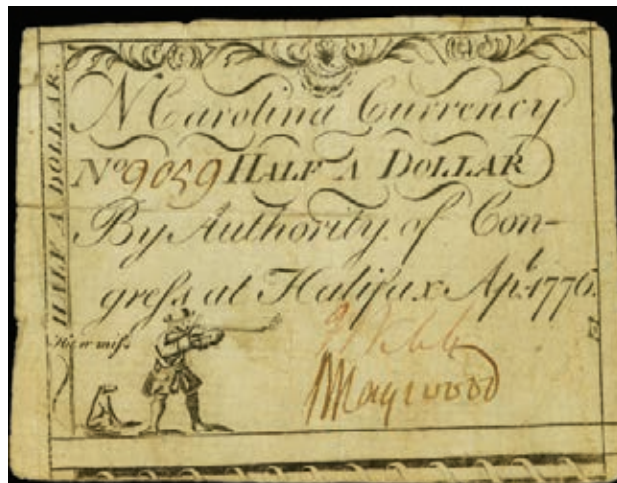 HALF A DOLLAR.
N Carolina Currency
No 9059 HALF A DOLLAR
By Authority of Con-
greſs at Halifax Apl. 1776.
W Haywood